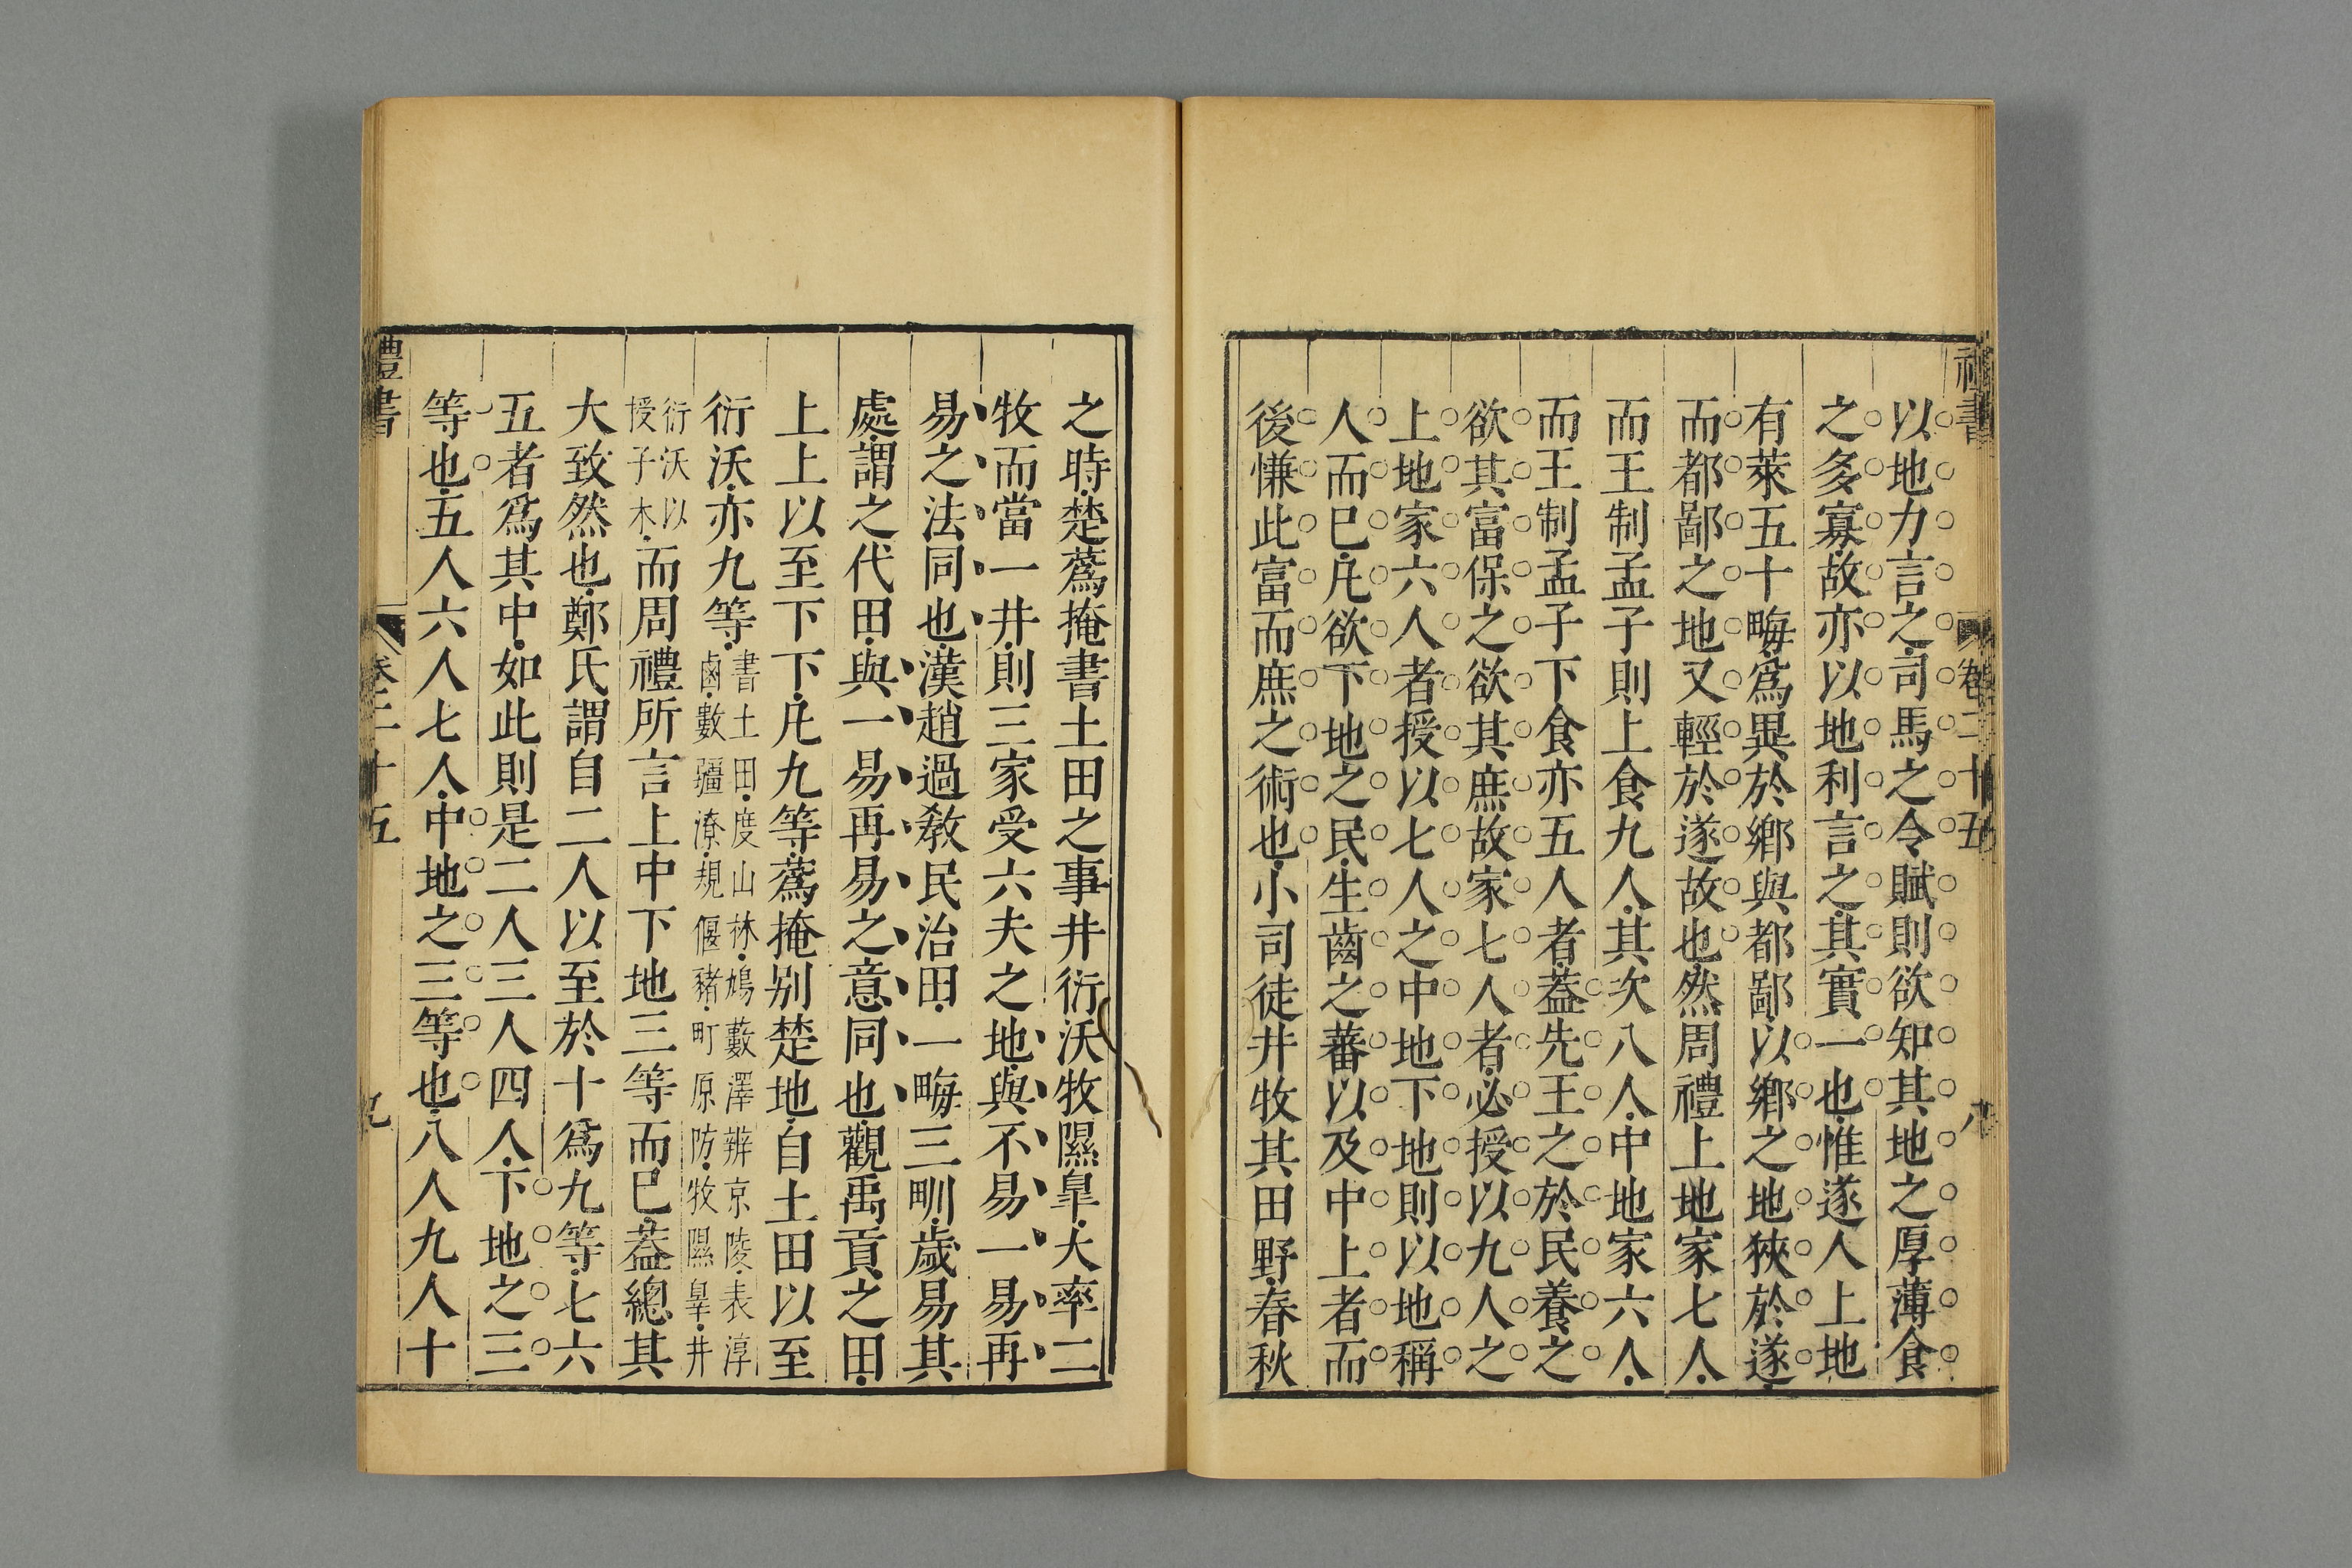 禮書 卷二十五 八
以地力言之司馬之令賦則欲知其地之厚薄食
之多寡故亦以地利言之其實一也惟遂人上地
有萊五十畮爲異於鄉與都鄙以鄉之地狹於遂
而都鄙之地又輕於遂故也然周禮上地家七人
而王制孟子則上食九人其次八人中地家六人
而王制孟子下食亦五人者葢先王之於民養之
欲其富保之欲其庶故家七人者必授以九人之
上地家六人者授以七人之中地下地則以地稱
人而已凡欲下地之民生齒之蕃以及中上者而
後慊此富而庶之術也小司徒井牧其田野春秋
之時楚蒍掩書土田之事井衍沃牧隰臯大率二
牧而當一井則三家受六夫之地與不易一易再
易之法同也漢趙過敎民治田一畮三甽歲易其
處謂之代田與一易再易之意同也觀禹貢之田
上上以至下下凡九等蒍掩别楚地自土田以至
衍沃亦九等書土田度山林鳩藪澤辨京陵表淳
鹵數疆潦規偃豬町原防牧隰臯井
衍沃以
授子木而周禮所言上中下地三等而已葢總其
大致然也鄭氏謂自二人以至於十爲九等七六
五者爲其中如此則是二人三人四人下地之三
等也五人六人七人中地之三等也八人九人十
禮書 卷二十五 九